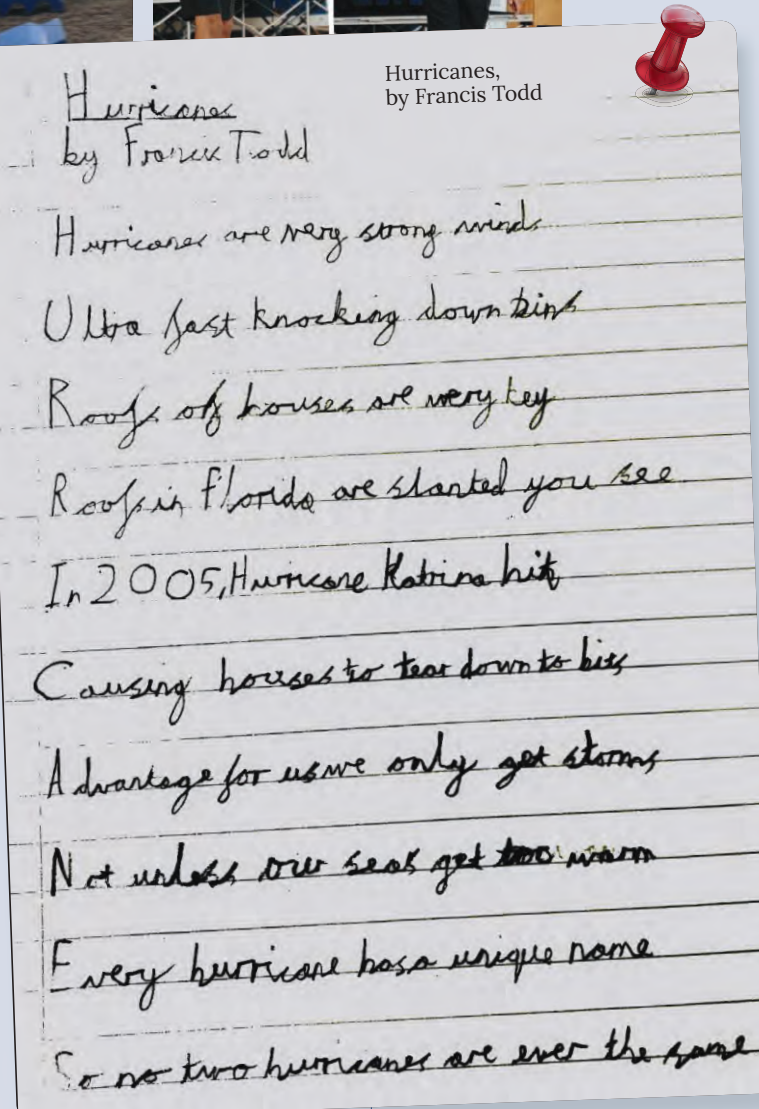 Hurricanes,
by Francis Todd
Hurricanes
by Francis Todd
Hurricanes are very strong winds
Ultra fast knocking down bins
Roofs of houses are very key
Roofs in Florida are slanted you see
In 2005, Hurricane Katrina hit
Causing houses to tear down to bits
Advantage for us we only get storms
Not unless our seas get too warm
Every hurricane has a unique name
So no two hurricanes are ever the same